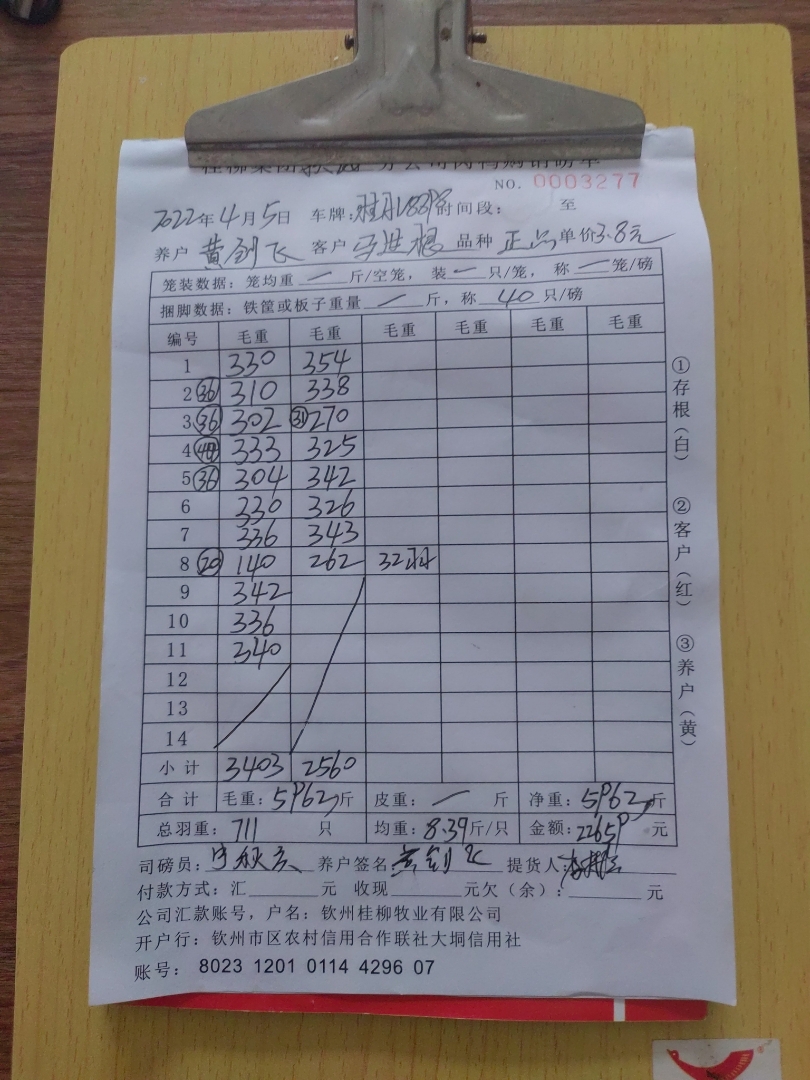 NO. 0003277
2022年4月5日 车牌: 时间段: 至
养户 黄剑飞 客户 马进根 品种 正品 单价3.8元
笼装数据: 笼均重 — 斤/空笼, 装 — 只/笼, 称 — 笼/磅
捆脚数据: 铁筐或板子重量 — 斤, 称 40 只/磅
编号 毛重 毛重 毛重 毛重 毛重 毛重
1 330 354
2 36 310 338
3 36 302 31 270
4 333 325
5 36 304 342
6 330 326
7 336 343
8 20 140 262 32羽
9 342
10 336
11 340
12
13
14
小计 3403 2560
合计 毛重: 5962斤 皮重: — 斤 净重: 5962斤
总羽重: 711 只 均重: 8.39斤/只 金额: 22659 元
司磅员: 养户签名: 黄剑飞 提货人:
付款方式: 汇 元 收现 元欠(余): 元
公司汇款账号, 户名: 钦州桂柳牧业有限公司
开户行: 钦州市区农村信用合作联社大垌信用社
账号: 8023 1201 0114 4296 07
①存根(白)
②客户(红)
③养户(黄)